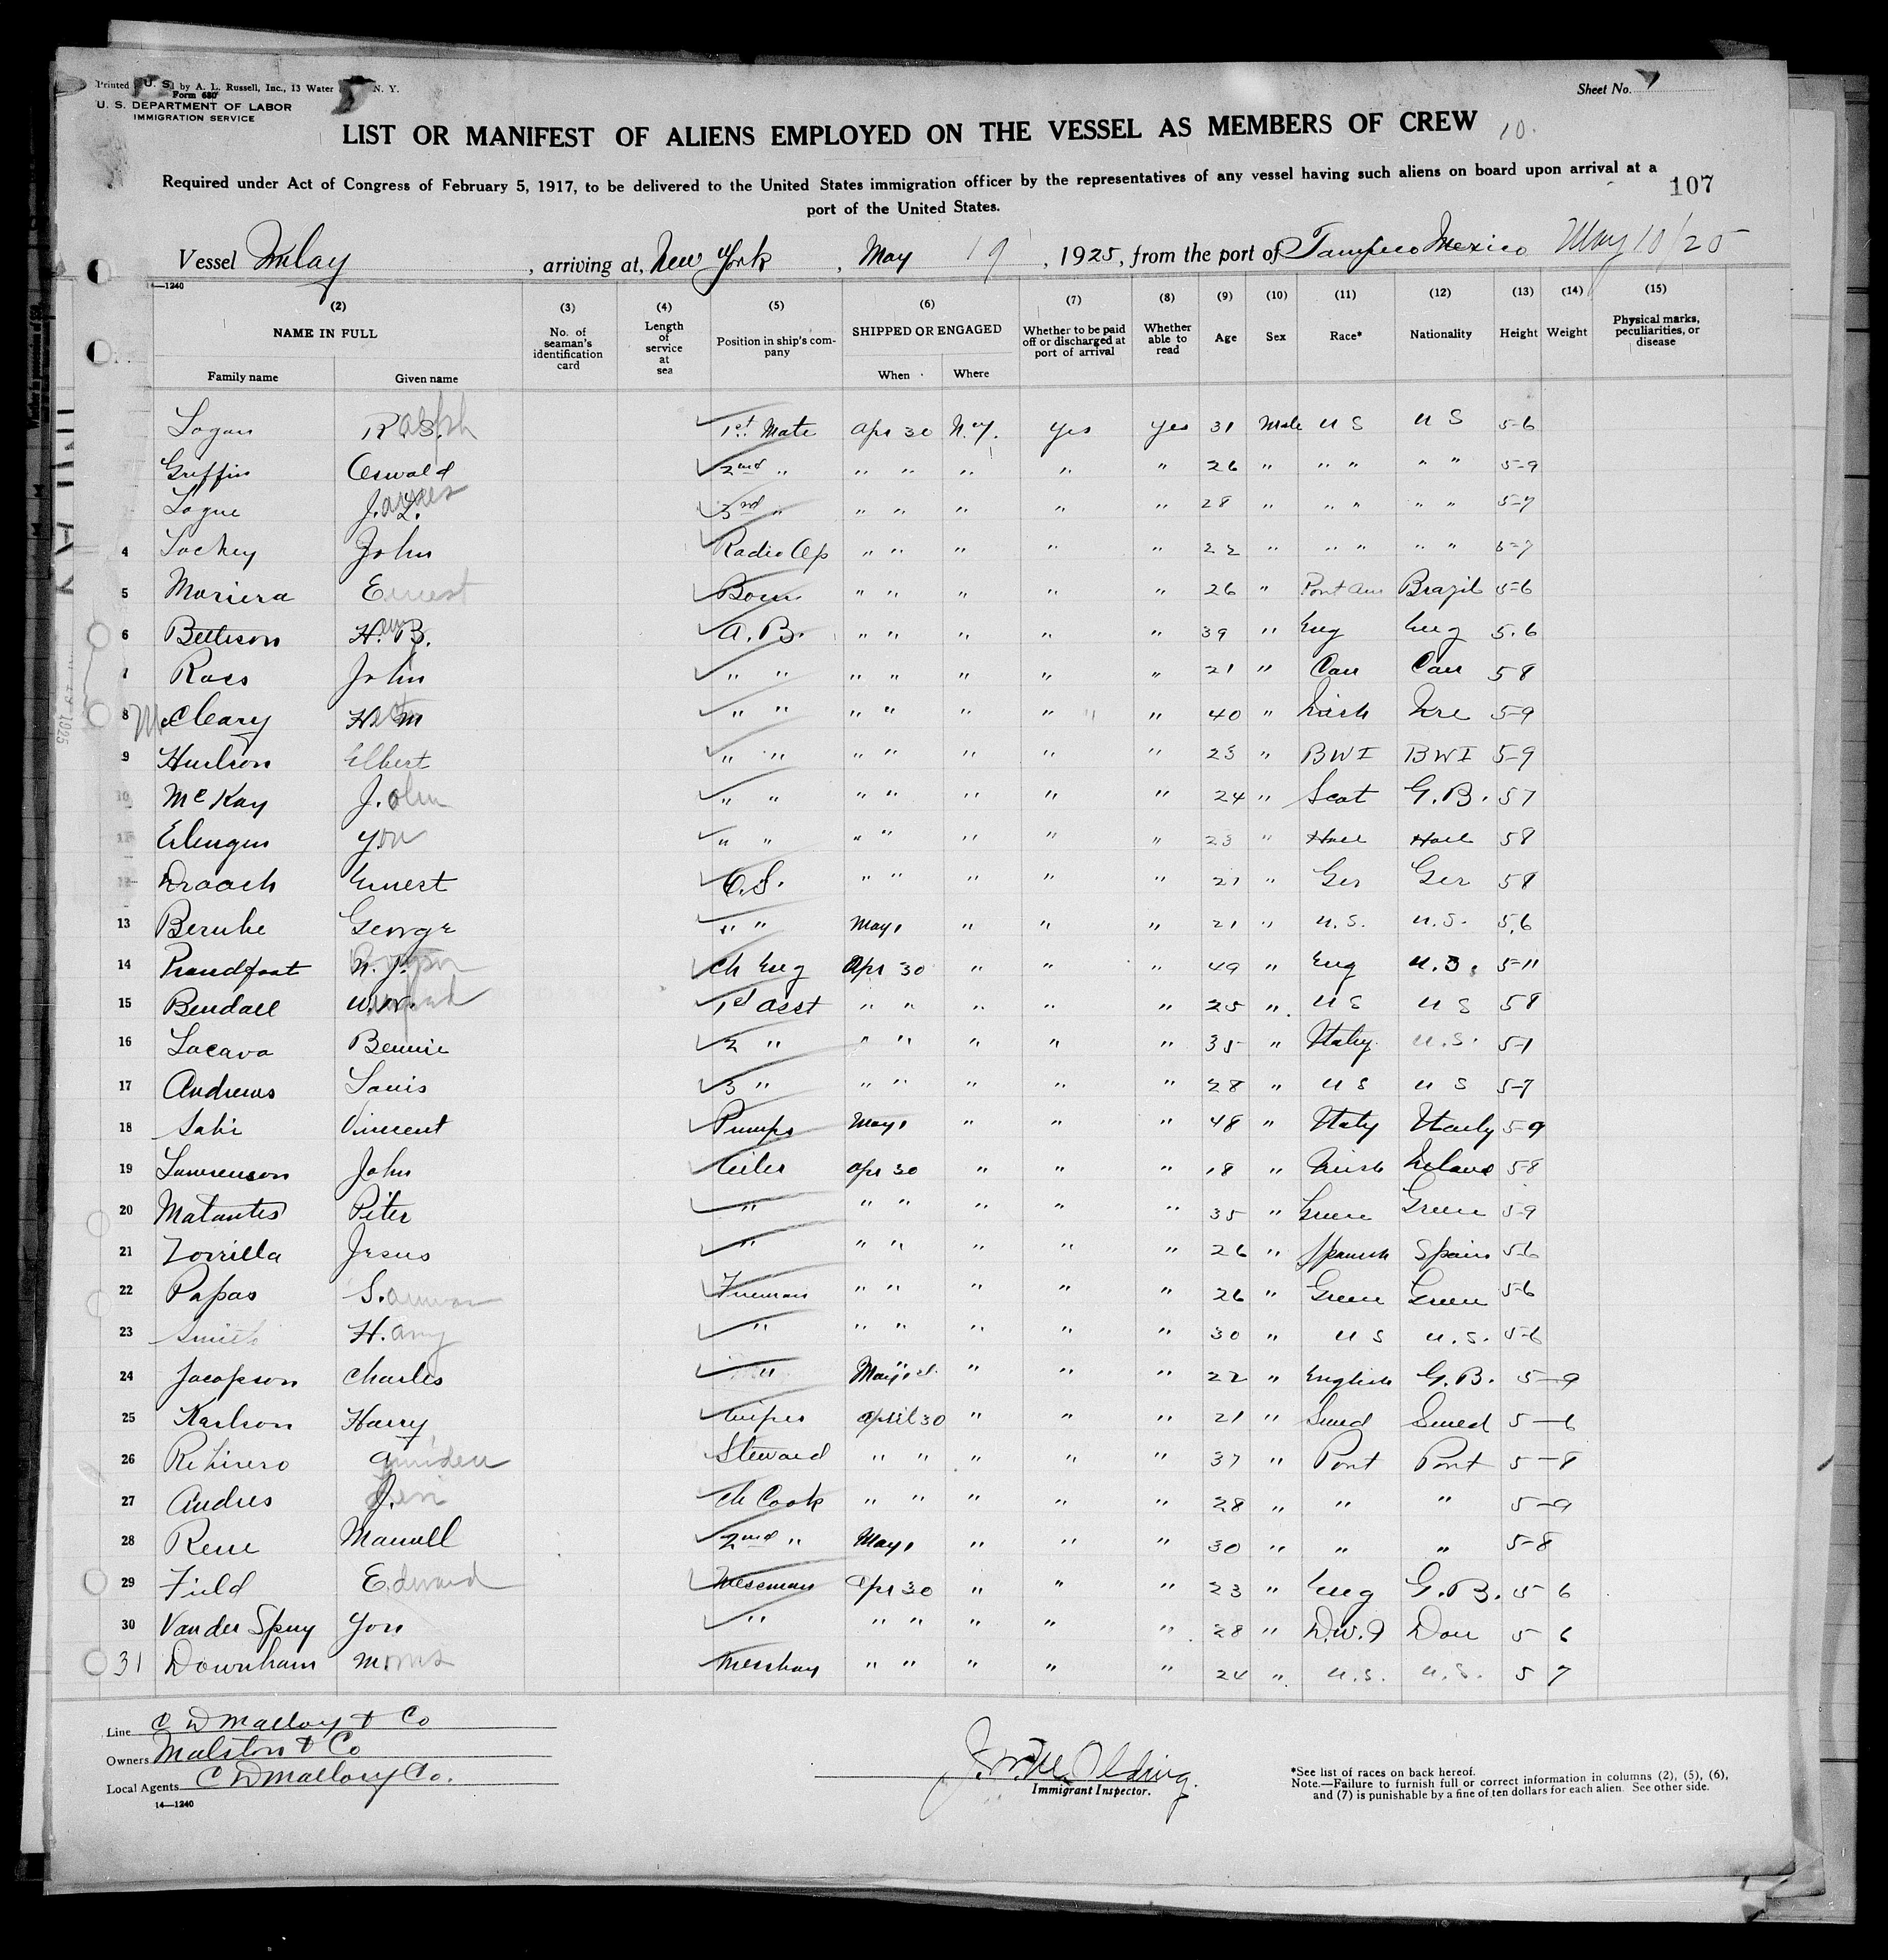 Printed by A. L. Russell, Inc., 13 Water N. Y.
U. S.
5
Form 680
U. S. DEPARTMENT OF LABOR
IMMIGRATION SERVICE
Sheet No.
LIST OR MANIFEST OF ALIENS EMPLOYED ON THE VESSEL AS MEMBERS OF CREW 10.
Required under Act of Congress of February 5, 1917, to be delivered to the United States immigration officer by the representatives of any vessel having such aliens on board upon arrival at a
port of the United States.
107
Vessel Imlay, arriving at New York, May 19, 1925, from the port of Tampico Mexico May 10/25
14—1240
(2) (3) (4) (5) (6) (7) (8) (9) (10) (11) (12) (13) (14) (15)
NAME IN FULL
Family name Given name
No. of seaman's identification card
Length of service at sea
Position in ship's company
SHIPPED OR ENGAGED
When Where
Whether to be paid off or discharged at port of arrival
Whether able to read
Age Sex Race* Nationality Height Weight
Physical marks, peculiarities, or disease
Logan Ralph 1st Mate Apr 30 N.Y. Yes Yes 31 Male U S U S 5-6
Griffin Oswald 2nd " " " " " " 26 " " " " " 5-9
Logue James 3rd " " " " " " 28 " " " " " 5-7
4 John Radio Op " " " " " 22 " " " " " 5-7
5 Moriera Ernest Bosn " " " " " 26 " Port Brazil 5-6
6 Bettison H. B. A. B. " " " " " 39 " Eng Eng 5.6
7 Ross John " " " " " " " 21 " Can Can 5 8
8 McCleary Wm " " " " " " " 40 " Irish Ire 5-9
9 Elbert " " " " " " " 23 " BWI BWI 5-9
10 McKay John " " " " " " " 24 " Scot G.B. 5 7
11 Yon " " " " " " 23 " Holl Holl 5 8
12 Ernest O.S. " " " " " 21 " Ger Ger 5 8
13 Berube George " " May 1 " " " 21 " U.S. U.S. 5.6
14 Proudfoot Ch Eng Apr 30 " " " 49 " Eng U.S. 5-11
15 Bendall 1st Asst " " " " " 25 " U S U S 5 8
16 Locava Bennie 2 " " " " " " 35 " Italy U.S. 5-1
17 Andrews Louis 3 " " " " " " 28 " U S U S 5-7
18 Vincent Pumps May 1 " " " 48 " Italy Italy 5-9
19 Lawrenson John Oiler Apr 30 " " " 18 " Irish Ireland 5-8
20 Matantes Peter " " " " " " 35 " Greece Greece 5-9
21 Zorrilla Jesus " " " " " " 26 " Spanish Spain 5-6
22 Papas S. Fireman " " " " " 26 " Greece Greece 5-6
23 Smith Harry " " " " " " 30 " U S U.S. 5-6
24 Jacopson Charles " May 1st " " " 22 " English G.B. 5—9
25 Karlson Harry Wiper April 30 " " " 21 " Swed Swed 5—6
26 Steward " " " " " 37 " Port Port 5—8
27 Andres J. Ch Cook " " " " " 28 " " " 5—9
28 Rene Manuell 2nd " May 1 " " " 30 " " " 5-8
29 Field Edward Messman Apr 30 " " " 23 " Eng G.B. 5 6
30 Van der Spuy Yon " " " " " " 28 " 5 6
31 Downham Morris Messboy " " " " " 24 " U.S. U.S. 5 7
Line C D Mallory & Co
Owners Malston & Co
Local Agents C D Mallory Co.
14—1240
Immigrant Inspector.
*See list of races on back hereof.
Note.—Failure to furnish full or correct information in columns (2), (5), (6),
and (7) is punishable by a fine of ten dollars for each alien. See other side.